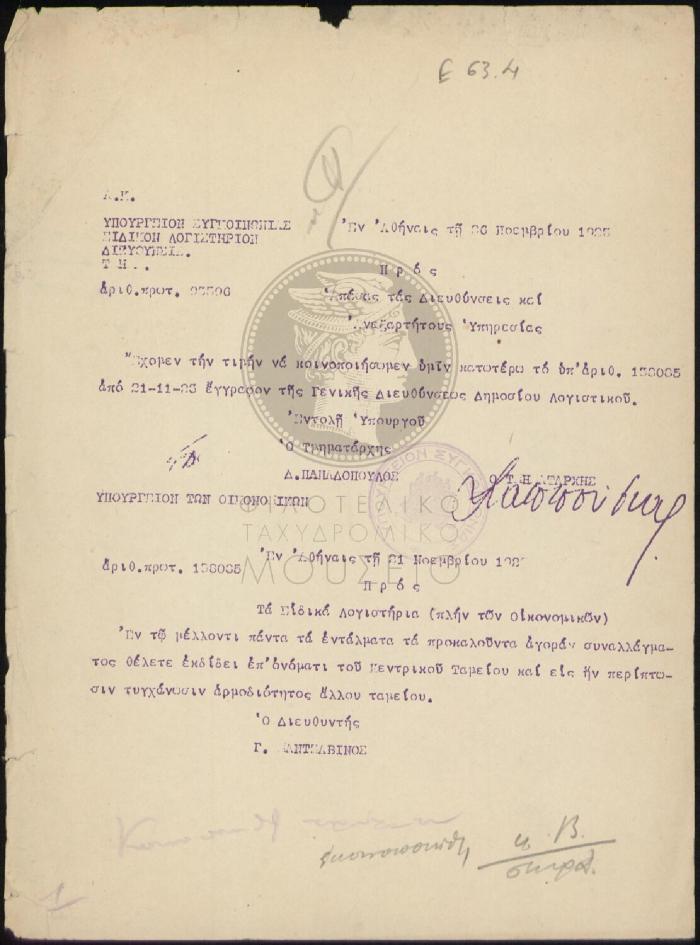 Ε 63.4
Α.Κ.
ΥΠΟΥΡΓΕΙΟΝ ΣΥΓΚΟΙΝΩΝΙΑΣ
ΕΙΔΙΚΟΝ ΛΟΓΙΣΤΗΡΙΟΝ
ΔΙΕΥΘΥΝΣΙΣ.
ἀριθ.πρωτ.
Ἐν Ἀθήναις τῇ 26 Νοεμβρίου
Π ρ ό ς
Ἁπάσας τάς Διευθύνσεις καί
Ἀνεξαρτήτους Ὑπηρεσίας
Ἔχομεν τήν τιμήν νά κοινοποιήσωμεν ὑμῖν κατωτέρω τό ὑπ'ἀριθ. 138085
ἀπό 21-11-25 ἔγγραφον τῆς Γενικῆς Διευθύνσεως Δημοσίου Λογιστικοῦ.
Ἐντολῇ Ὑπουργοῦ
Ὁ Τμηματάρχης
Δ.ΠΑΠΑΔΟΠΟΥΛΟΣ
Ο ΤΜΗΜΑΤΑΡΧΗΣ
ΥΠΟΥΡΓΕΙΟΝ ΤΩΝ ΟΙΚΟΝΟΜΙΚΩΝ
ΦΙΛΟΤΕΛΙΚΟ
ΤΑΧΥΔΡΟΜΙΚΟ
ΜΟΥΣΕΙΟ
ἀριθ.πρωτ. 138085
Ἐν Ἀθήναις τῇ 21 Νοεμβρίου
Π ρ ό ς
Τά Εἰδικά Λογιστήρια (πλήν τῶν Οἰκονομικῶν)
Ἐν τῷ μέλλοντι πάντα τά ἐντάλματα τά προκαλοῦντα ἀγοράν συναλλάγμα-
τος θέλετε ἐκδίδει ἐπ'ὀνόματι τοῦ Κεντρικοῦ Ταμείου καί εἰς ἥν περίπτω-
σιν τυγχάνωσιν ἁρμοδιότητος ἄλλου ταμείου.
Ὁ Διευθυντής
Γ. ΜΑΝΤΖΑΒΙΝΟΣ